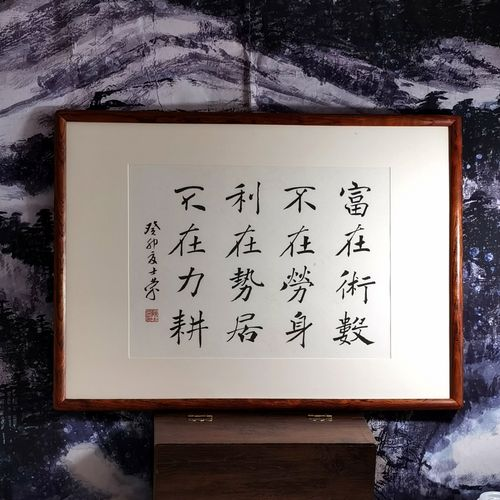 富在術數
不在勞身
利在勢居
不在力耕
癸卯夏士荣